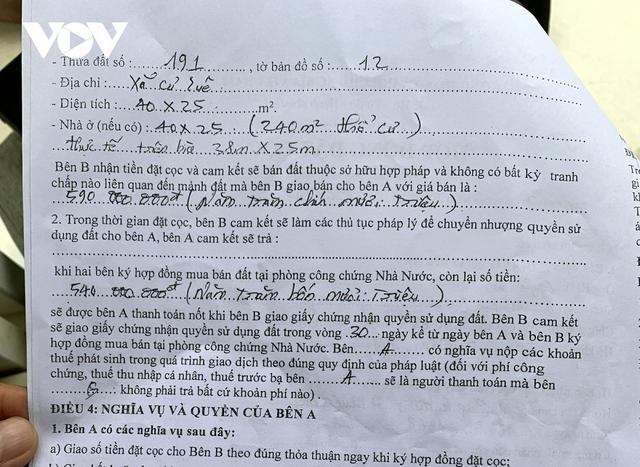 VOV
- Thửa đất số : 191 , tờ bản đồ số : 12
- Địa chỉ : Xã Cư Suê
- Diện tích : 40 x 25 m².
- Nhà ở (nếu có) : 40 x 25 (240m² thổ cư)
thực tế trên bìa 38m x 25m
Bên B nhận tiền đặt cọc và cam kết sẽ bán đất thuộc sở hữu hợp pháp và không có bất kỳ tranh
chấp nào liên quan đến mảnh đất mà bên B giao bán cho bên A với giá bán là :
590 000 000đ (Năm trăm chín mươi triệu)
2. Trong thời gian đặt cọc, bên B cam kết sẽ làm các thủ tục pháp lý để chuyển nhượng quyền sử
dụng đất cho bên A, bên A cam kết sẽ trả :
khi hai bên ký hợp đồng mua bán đất tại phòng công chứng Nhà Nước, còn lại số tiền:
540 000 000đ (Năm trăm bốn mươi triệu)
sẽ được bên A thanh toán nốt khi bên B giao giấy chứng nhận quyền sử dụng đất. Bên B cam kết
sẽ giao giấy chứng nhận quyền sử dụng đất trong vòng 30 ngày kể từ ngày bên A và bên B ký
hợp đồng mua bán tại phòng công chứng Nhà Nước. Bên A có nghĩa vụ nộp các khoản
thuế phát sinh trong quá trình giao dịch theo đúng quy định của pháp luật (đối với phí công
chứng, thuế thu nhập cá nhân, thuế trước bạ bên A sẽ là người thanh toán mà bên
B : không phải trả bất cứ khoản phí nào) .
ĐIỀU 4: NGHĨA VỤ VÀ QUYỀN CỦA BÊN A
1. Bên A có các nghĩa vụ sau đây:
a) Giao số tiền đặt cọc cho Bên B theo đúng thỏa thuận ngay khi ký hợp đồng đặt cọc;